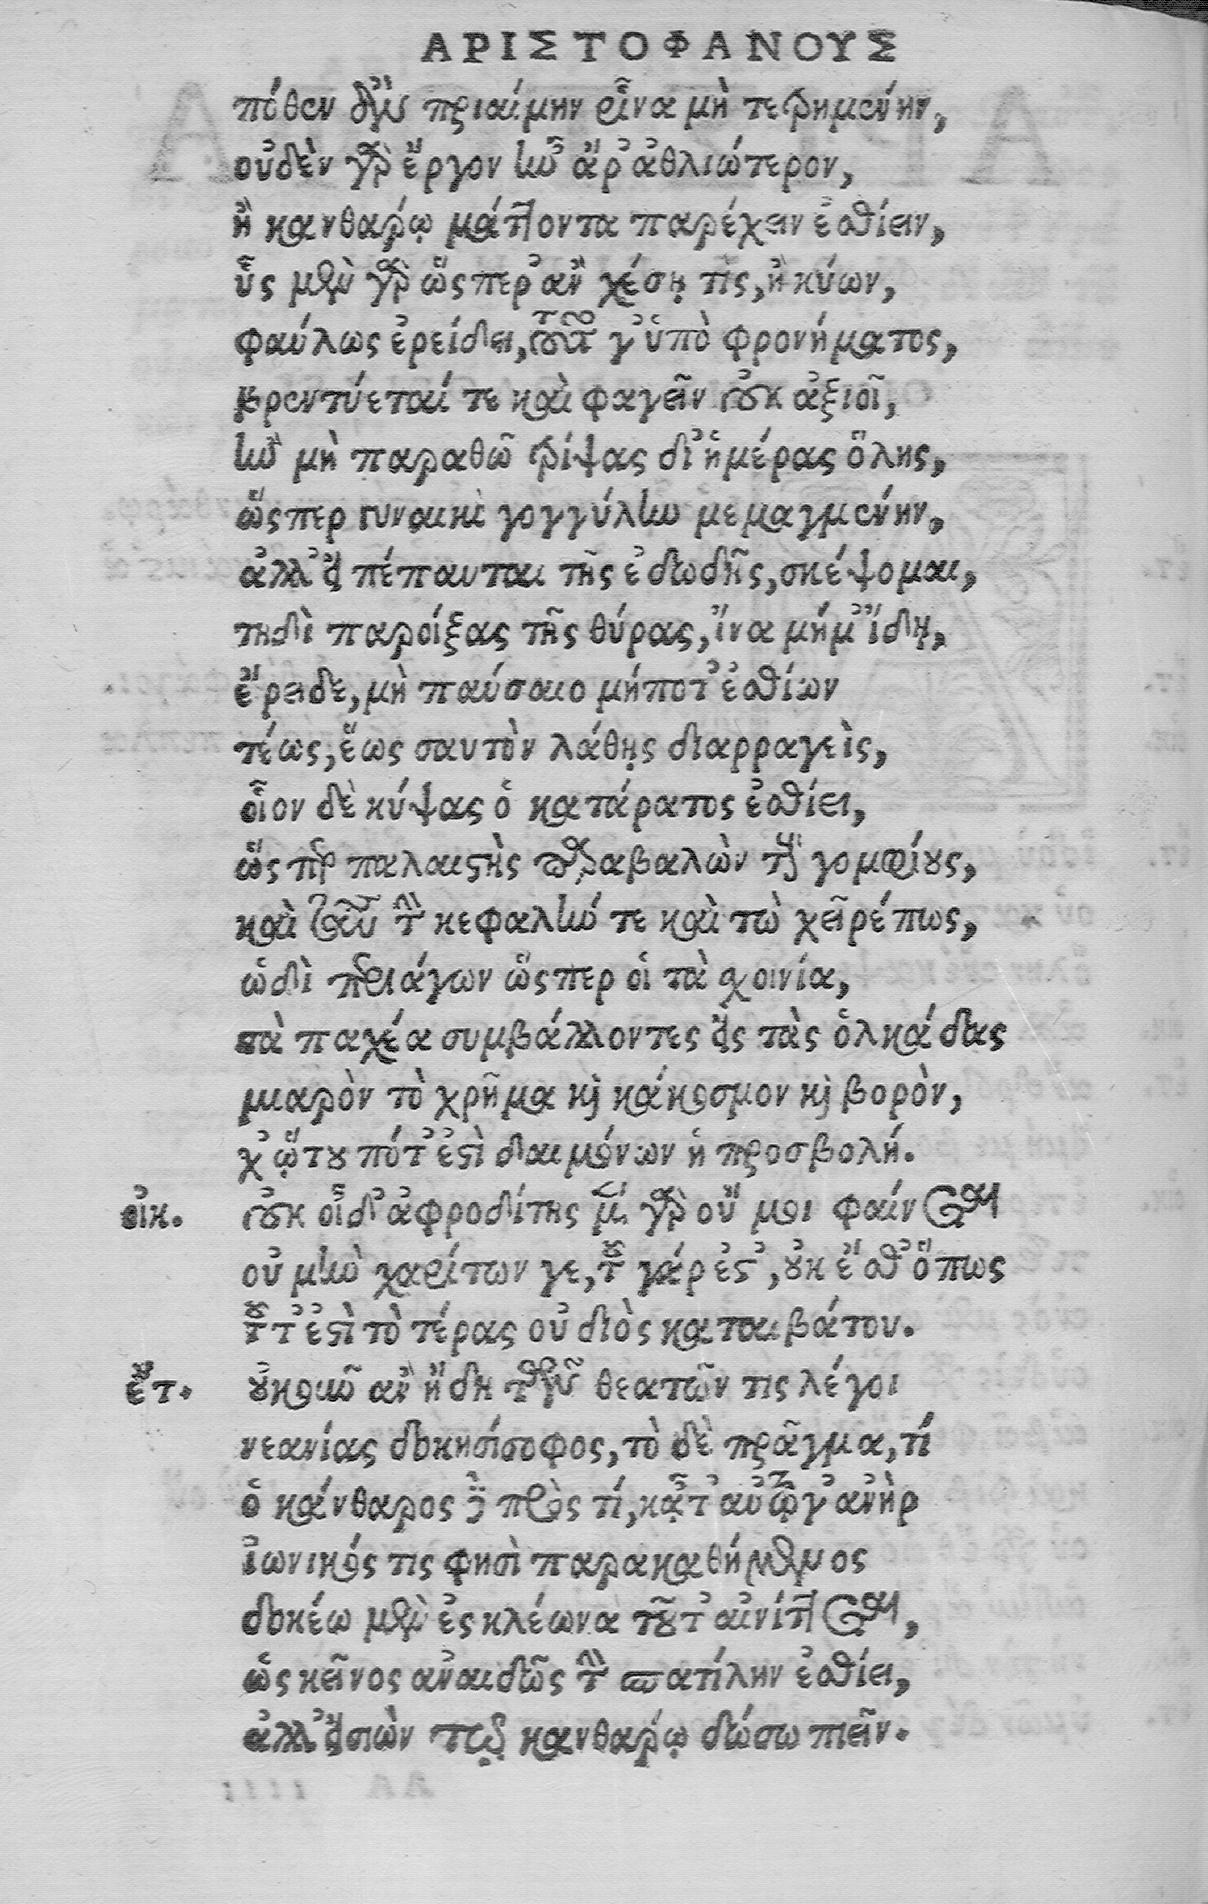 ΑΡΙΣΤΟΦΑΝΟΥΣ
πόθεν ἂν πριαίμην ῥῖνα μὴ τετρημένην,
οὐδὲν γὰρ ἔργον ἦν ἄρ' ἀθλιώτερον,
ἢ κανθάρῳ μάττοντα παρέχειν ἐσθίειν,
ὗς μὲν γὰρ ὥσπερ ἂν χέσῃ τὶς, ἢ κύων,
φαύλως ἐρείδει, οὗτος γ' ὑπὸ φρονήματος,
βρεντύεταί τε καὶ φαγεῖν οὐκ ἀξιοῖ,
ἢν μὴ παραθῶ τρίψας δι' ἡμέρας ὅλης,
ὥσπερ γυναικὶ γογγύλην μεμαγμένην,
ἀλλ' εἰ πέπαυται τῆς ἐδωδῆς, σκέψομαι,
τηδὶ παροίξας τῆς θύρας, ἵνα μή μ' ἴδῃ,
ἔρειδε, μὴ παύσαιο μήποτ' ἐσθίων
τέως, ἕως σαυτὸν λάθῃς διαρραγεὶς,
οἷον δὲ κύψας ὁ κατάρατος ἐσθίει,
ὥσπερ παλαιστὴς παραβαλὼν τοὺς γομφίους,
καὶ ταῦτα τὴν κεφαλήν τε καὶ τὼ χεῖρέ πως,
ὡδὶ περιάγων ὥσπερ οἱ τὰ σχοινία,
τὰ παχέα συμβάλλοντες εἰς τὰς ὁλκάδας
μιαρὸν τὸ χρῆμα καὶ κάκοσμον καὶ βορὸν,
χ' ᾥτου πότ' ἐστὶ δαιμόνων ἡ προσβολή.
οἰκ. οὐκ οἶδ' ἀφροδίτης μὲν γὰρ οὔ μοι φαίνεται
οὐ μὴν χαρίτων γε, τοῦ γάρ ἐστ', οὐκ ἔσθ' ὅπως
τοῦτ' ἐστὶ τὸ τέρας οὐ διὸς καταιβάτου.
ἕτ. οὐκοῦν ἂν ἤδη τῶν θεατῶν τις λέγοι
νεανίας δοκησίσοφος, τὸ δὲ πρᾶγμα, τί
ὁ κάνθαρος δὲ πρὸς τί, κᾆτ' αὐτῷ γ' ἀνὴρ
ἰωνικός τις φησὶ παρακαθήμενος
δοκέω μὲν ἐς κλέωνα τοῦτ' αἰνίττεται,
ὡς κεῖνος ἀναιδῶς τὴν σπατίλην ἐσθίει,
ἀλλ' εἰσιὼν τῷ κανθάρῳ δώσω πιεῖν.